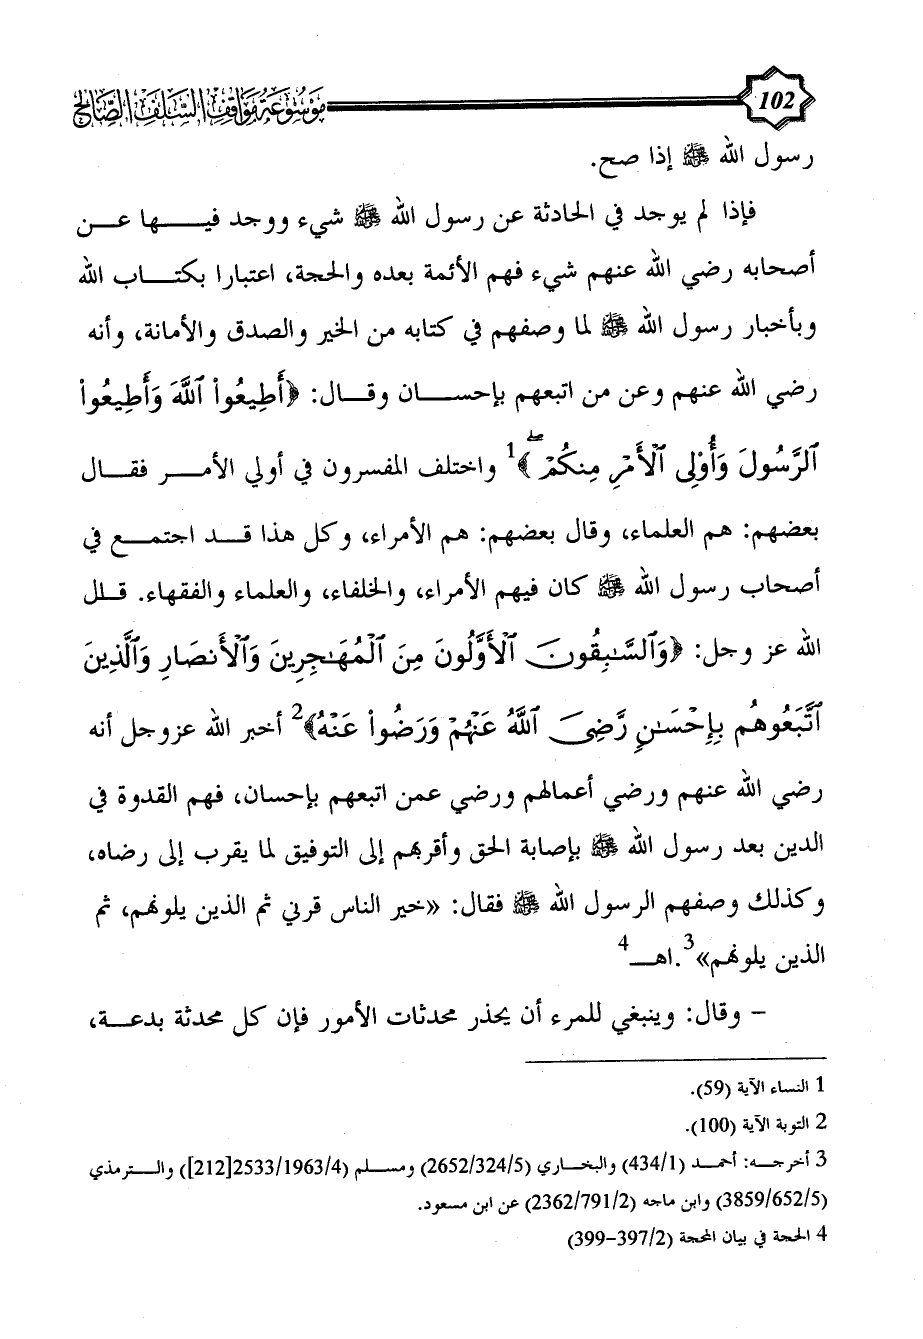 102 موسوعة مواقف السلف الصالح
رسول الله ﷺ إذا صح.
فإذا لم يوجد في الحادثة عن رسول الله ﷺ شيء ووجد فيها عن
أصحابه رضي الله عنهم شيء فهم الأئمة بعده والحجة، اعتبارا بكتاب الله
وبأخبار رسول الله ﷺ لما وصفهم في كتابه من الخير والصدق والأمانة، وأنه
رضي الله عنهم وعن من اتبعهم بإحسان وقال: ﴿أَطِيعُواْ ٱللَّهَ وَأَطِيعُواْ
ٱلرَّسُولَ وَأُوْلِى ٱلْأَمْرِ مِنكُمْ ۖ﴾1 واختلف المفسرون في أولي الأمر فقال
بعضهم: هم العلماء، وقال بعضهم: هم الأمراء، وكل هذا قد اجتمع في
أصحاب رسول الله ﷺ كان فيهم الأمراء، والخلفاء، والعلماء والفقهاء. قلل
الله عز وجل: ﴿وَٱلسَّٰبِقُونَ ٱلْأَوَّلُونَ مِنَ ٱلْمُهَٰجِرِينَ وَٱلْأَنصَارِ وَٱلَّذِينَ
ٱتَّبَعُوهُم بِإِحْسَٰنٍ رَّضِىَ ٱللَّهُ عَنْهُمْ وَرَضُواْ عَنْهُ﴾2 أخبر الله عزوجل أنه
رضي الله عنهم ورضي أعمالهم ورضي عمن اتبعهم بإحسان، فهم القدوة في
الدين بعد رسول الله ﷺ بإصابة الحق وأقربهم إلى التوفيق لما يقرب إلى رضاه،
وكذلك وصفهم الرسول الله ﷺ فقال: «خير الناس قرني ثم الذين يلونهم، ثم
الذين يلونهم»3.اهـ4
– وقال: وينبغي للمرء أن يحذر محدثات الأمور فإن كل محدثة بدعة،
1 النساء الآية (59).
2 التوبة الآية (100).
3 أخرجه: أحمد (434/1) والبخاري (2652/324/5) ومسلم (2533/1963/4[212]) والترمذي
(3859/652/5) وابن ماجه (2362/791/2) عن ابن مسعود.
4 الحجة في بيان المحجة (397/2-399)